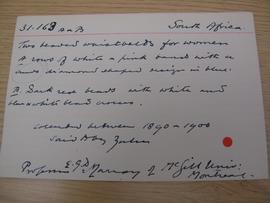 31.163 A & B South Africa.
Two beaded waistbelts for women
A rows of white & pink bands with a
diamond shaped design in blue.
B Dark red beads with white and
blue & white bead crosses.
Collected between 1890 & 1900
said to by Zulus
Professor E.G.D. Murray of McGill Univ:
Montreal.